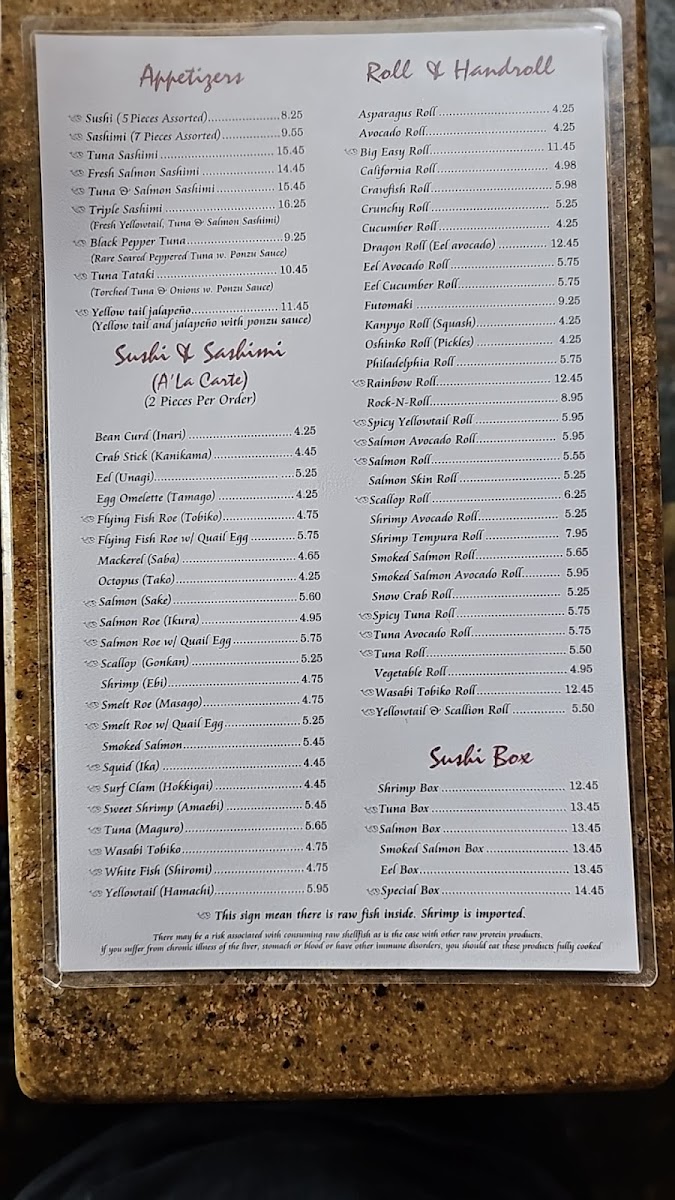 Appetizers
Sushi (5 Pieces Assorted)......................8.25
Sashimi (7 Pieces Assorted).................9.55
Tuna Sashimi..................................15.45
Fresh Salmon Sashimi......................14.45
Tuna & Salmon Simi..................15.45
Triple Sashimi.................................16.25
(Fresh Yellowtail, Tuna & Salmon Sashimi)
Black Pepper Tuna............................9.25
(Rare Seared Peppered Tuna w. Ponzu Sauce)
Tuna Tataki....................................10.45
(Torched Tuna & Onions w. Ponzu Sauce)
Yellow tail jalapeño..........................11.45
(Yellow tail and jalapeño with ponzu sauce)
Sushi & Sashimi
(A'La Carte)
(2 Pieces Per Order)
Bean Curd (Inari)................................4.25
Crab Stick (Kanikama).........................4.45
Eel (Unagi)..........................................5.25
Egg Omelette (Tamago)........................4.25
Flying Fish Roe (Tobiko)......................4.75
Flying Fish Roe w/ Quail Egg.............5.75
Mackerel (Saba)..................................4.65
Octopus (Tako)....................................4.25
Salmon (Sake).....................................5.60
Salmon Roe (Ikura)..............................4.95
Salmon Roe w/ Quail Egg...................5.75
Scallop (Gonkan).................................5.25
Shrimp (Ebi)........................................4.75
Smelt Roe (Masago).............................4.75
Smelt Roe w/ Quail Egg......................5.25
Smoked Salmon...................................5.45
Squid (Ika)..........................................4.45
Surf Clam (Hokkigai)..........................4.45
Sweet Shrimp (Amaebi).......................5.45
Tuna (Maguro)....................................5.65
Wasabi Tobiko.....................................4.75
White Fish (Shiromi)...........................4.75
Yellowtail (Hamachi)...........................5.95
Roll & Handroll
Asparagus Roll.................................4.25
Avocado Roll....................................4.25
Big Easy Roll...................................11.45
California Roll.................................4.98
Crawfish Roll...................................5.98
Crunchy Roll....................................5.25
Cucumber Roll.................................4.25
Dragon Roll (Eel avocado)..............12.45
Eel Avocado Roll.............................5.75
Eel Cucumber Roll...........................5.75
Futomaki.........................................9.25
Kanpyo Roll (Squash)......................4.25
Oshinko Roll (Pickles).....................4.25
Philadelphia Roll.............................5.75
Rainbow Roll..................................12.45
Rock-N-Roll....................................8.95
Spicy Yellowtail Roll.......................5.95
Salmon Avocado Roll.......................5.95
Salmon Roll....................................5.55
Salmon Skin Roll.............................5.25
Scallop Roll....................................6.25
Shrimp Avocado Roll.......................5.25
Shrimp Tempura Roll.......................7.95
Smoked Salmon Roll........................5.65
Smoked Salmon Avocado Roll..........5.95
Snow Crab Roll...............................5.25
Spicy Tuna Roll..............................5.75
Tuna Avocado Roll..........................5.75
Tuna Roll.......................................5.50
Vegetable Roll................................4.95
Wasabi Tobiko Roll........................12.45
Yellowtail & Scallion Roll...............5.50
Sushi Box
Shrimp Box....................................12.45
Tuna Box.......................................13.45
Salmon Box....................................13.45
Smoked Salmon Box.......................13.45
Eel Box..........................................13.45
Special Box....................................14.45
This sign mean there is raw fish inside. Shrimp is imported.
There may be a risk associated with consuming raw shellfish as is the case with other raw protein products.
If you suffer from chronic illness of the liver, stomach or blood or have other immune disorders, you should eat these products fully cooked